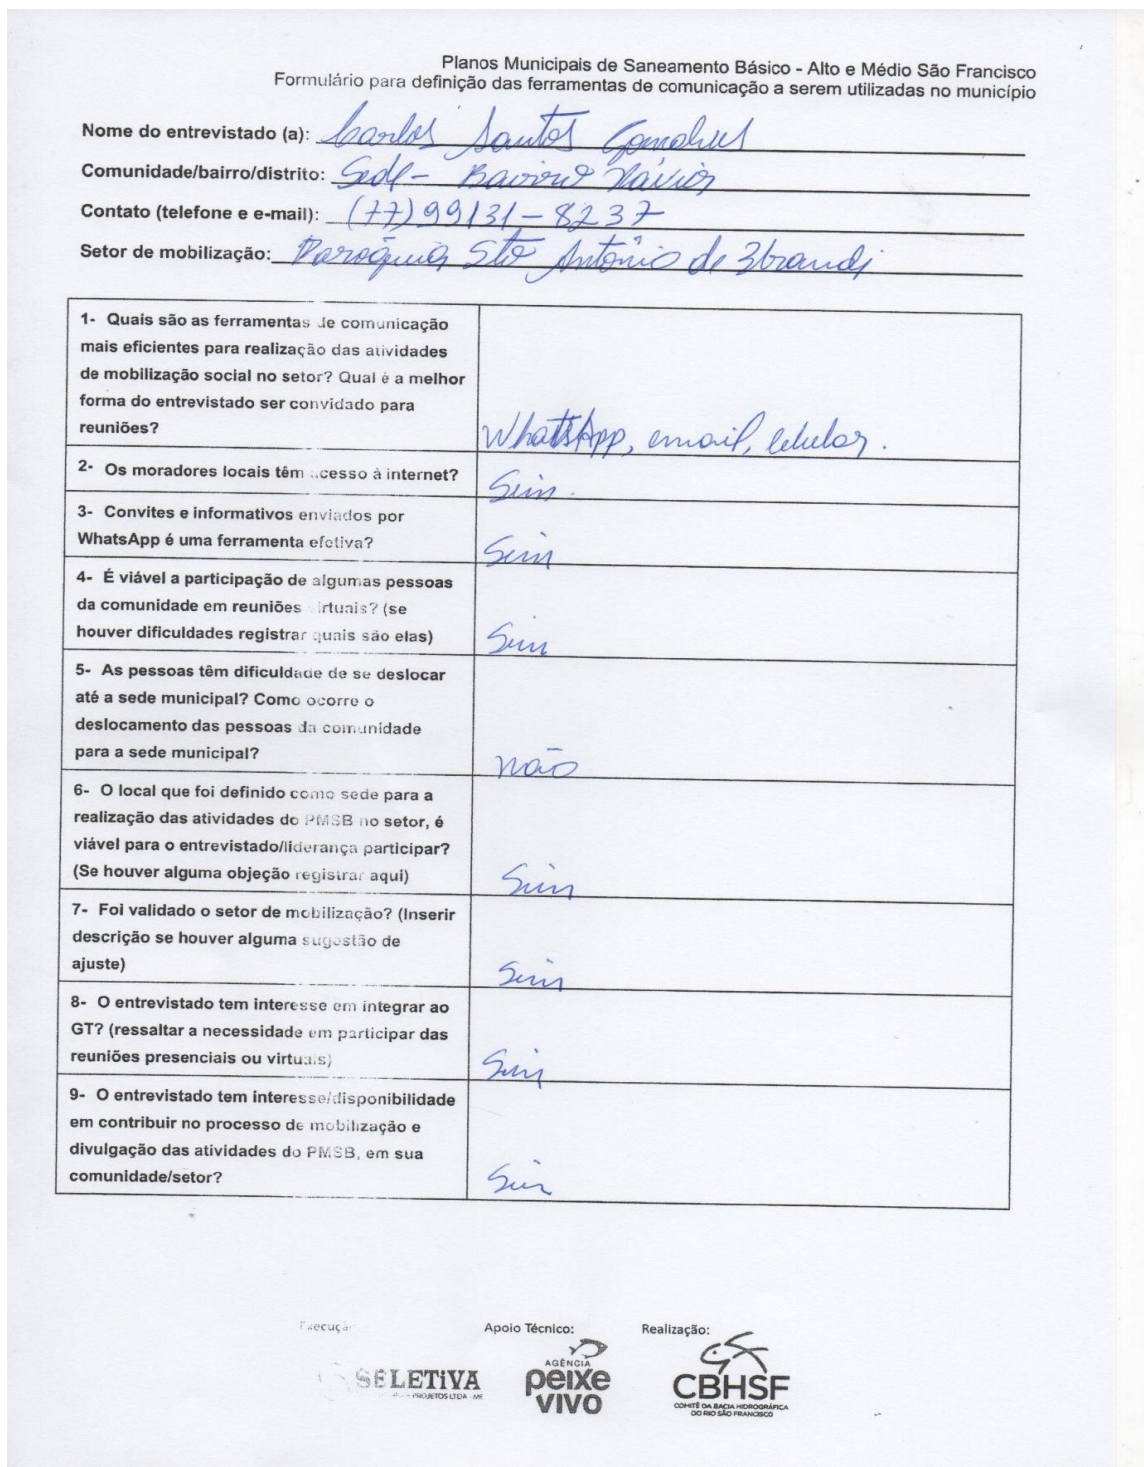 Planos Municipais de Saneamento Básico - Alto e Médio São Francisco
Formulário para definição das ferramentas de comunicação a serem utilizadas no município
Nome do entrevistado (a): Carlos Santos Gonçalves
Comunidade/bairro/distrito: Sede - Bairro Xavier
Contato (telefone e e-mail): (77) 99131-8237
Setor de mobilização: Paróquia Sto Antônio de
1- Quais são as ferramentas de comunicação
mais eficientes para realização das atividades
de mobilização social no setor? Qual é a melhor
forma do entrevistado ser convidado para
reuniões?
WhatsApp, email, celular.
2- Os moradores locais têm acesso à internet?
Sim.
3- Convites e informativos enviados por
WhatsApp é uma ferramenta efetiva?
Sim
4- É viável a participação de algumas pessoas
da comunidade em reuniões virtuais? (se
houver dificuldades registrar quais são elas)
Sim
5- As pessoas têm dificuldade de se deslocar
até a sede municipal? Como ocorre o
deslocamento das pessoas da comunidade
para a sede municipal?
não
6- O local que foi definido como sede para a
realização das atividades do PMSB no setor, é
viável para o entrevistado/liderança participar?
(Se houver alguma objeção registrar aqui)
Sim
7- Foi validado o setor de mobilização? (Inserir
descrição se houver alguma sugestão de
ajuste)
Sim
8- O entrevistado tem interesse em integrar ao
GT? (ressaltar a necessidade em participar das
reuniões presenciais ou virtuais)
Sim
9- O entrevistado tem interesse/disponibilidade
em contribuir no processo de mobilização e
divulgação das atividades do PMSB, em sua
comunidade/setor?
Sim
Execução
Apoio Técnico:
Realização:
SELETIVA
PROJETOS LTDA - ME
AGÊNCIA
peixe
VIVO
CBHSF
COMITÊ DA BACIA HIDROGRÁFICA
DO RIO SÃO FRANCISCO